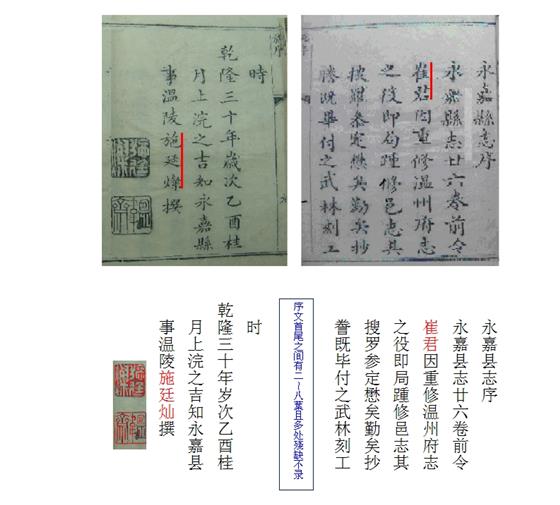 永嘉縣志序
永嘉縣志廿六卷前令
崔君因重修温州府志
之役即局踵修邑志其
搜羅叅定懋矣勤矣抄
謄既畢付之武林刻工
時
乾隆三十年歲次乙酉桂
月上浣之吉知永嘉縣
事温陵施廷燦撰
永嘉县志序
永嘉县志廿六卷前令
崔君因重修温州府志
之役即局踵修邑志其
搜罗参定懋矣勤矣抄
誊既毕付之武林刻工
序文首尾之间有二~八葉且多处残缺不录
时
乾隆三十年岁次乙酉桂
月上浣之吉知永嘉县
事温陵施廷灿撰